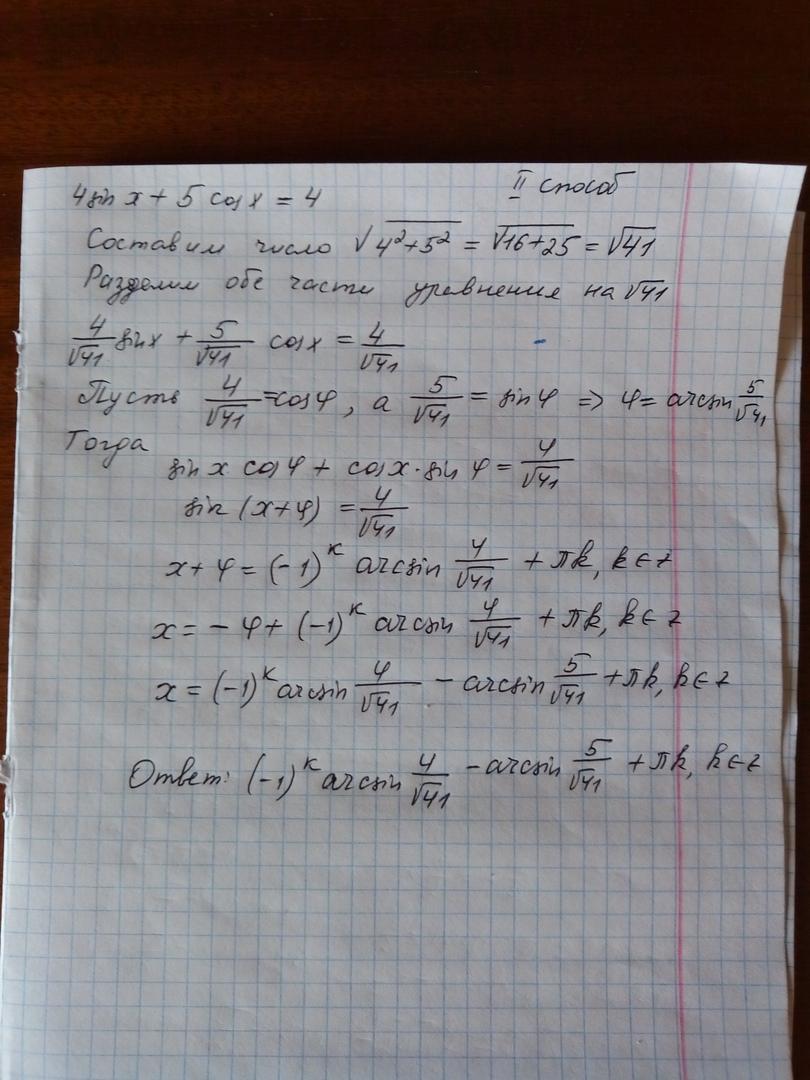 II способ
4 sin x + 5 cos x = 4
Составим число √(4²+5²) = √(16+25) = √41
Разделим обе части уравнения на √41
4/√41 sin x + 5/√41 cos x = 4/√41
Пусть 4/√41 = cos φ, а 5/√41 = sin φ => φ = arcsin 5/√41
Тогда
sin x cos φ + cos x · sin φ = 4/√41
sin (x+φ) = 4/√41
x + φ = (-1)^k arcsin 4/√41 + πk, k∈z
x = - φ + (-1)^k arcsin 4/√41 + πk, k∈z
x = (-1)^k arcsin 4/√41 - arcsin 5/√41 + πk, k∈z
Ответ: (-1)^k arcsin 4/√41 - arcsin 5/√41 + πk, k∈z